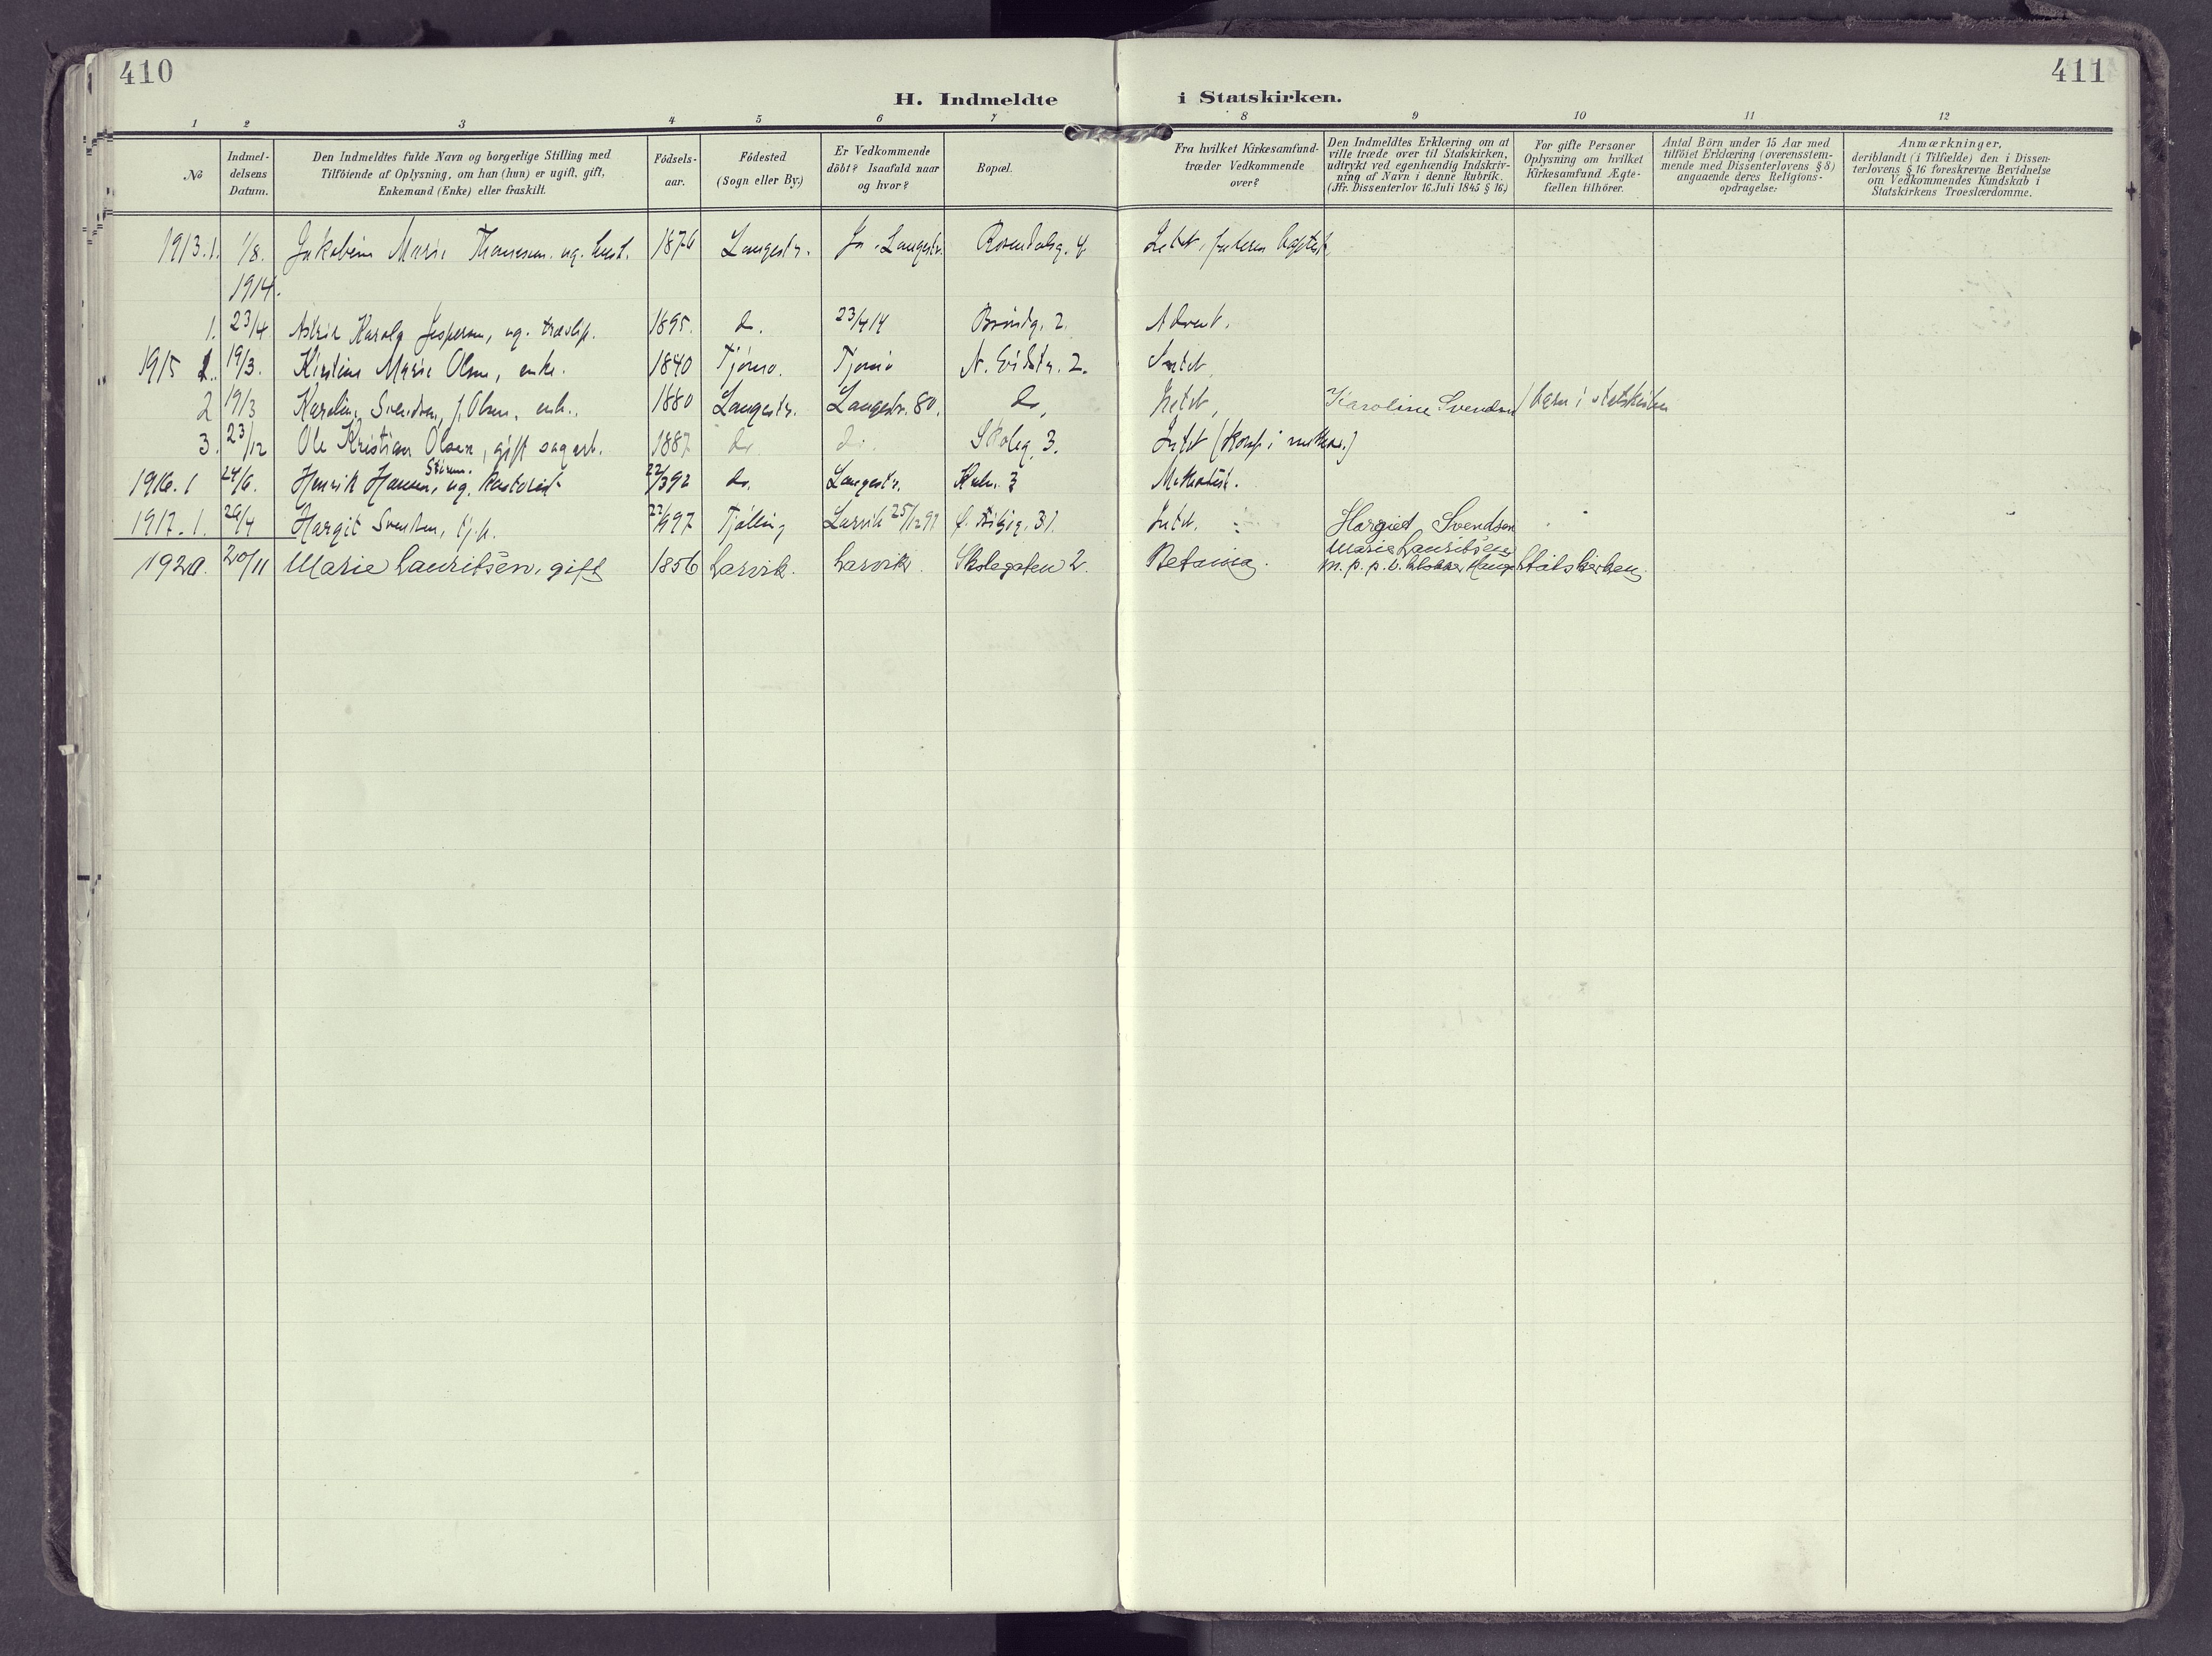 410
411
H. Indmeldte i Statskirken.
1 2 3 4 5 6 7 8 9 10 11 12
No
Indmel-
delsens
Datum.
Den Indmeldtes fulde Navn og borgerlige Stilling med
Tilföiende af Oplysning, om han (hun) er ugift, gift,
Enkemand (Enke) eller fraskilt.
Födsels-
aar.
Födested
(Sogn eller By.)
Er Vedkommende
döbt? Isaafald naar
og hvor?
Bopæl.
Fra hvilket Kirkesamfund
træder Vedkommende
over?
Den Indmeldtes Erklæring om at
ville træde over til Statskirken,
udtrykt ved egenhændig Indskriv-
ning af Navn i denne Rubrik.
(Jfr. Dissenterlov 16. Juli 1845 § 16.)
For gifte Personer
Oplysning om hvilket
Kirkesamfund Ægte-
fællen tilhörer.
Antal Börn under 15 Aar med
tilföiet Erklæring (overensstem-
mende med Dissenterlovens § 8)
angaaende deres Religions-
opdragelse:
Anmærkninger,
deriblandt (i Tilfælde) den i Dissen-
terlovens § 16 foreskrevne Bevidnelse
om Vedkommendes Kundskab i
Statskirkens Troeslærdomme.
1913. 1. 1/8. Jakobine Marie ug. 1876 Langestr. Ja. Langestr. Rosendalsg. 4 Intet,
1914.
1. 23/4 Astrid Jespersen, ug. 1895. do. 23/4 14 2. Advent.
1915 1. 19/3. Kirstine Marie Olsen, enke. 1840 Tjömö. Tjömö 2. Intet,
2 19/3 Karoline Svendsen, f. Olsen, enke. 1880 Langestr. Langestr. 80. do, Intet, Karoline Svendsen 1 barn i statskirken
3. 23/12 Ole Kristian Olsen, gift 1887 do. do. Skoleg. 3. Intet
1916. 1 24/6. Henrik Hansen, ug. 22/3 92 do. Langestr. 3 Methodist.
1917. 1. 29/4 Hargit Svendsen, tj.p. 22/9 97 Tjölling Larvik 25/12 97 31. Intet. Hargiet Svendsen
1920. 20/11 Marie Lauritsen, gift 1856 Larvik. Larvik. Skolegaten 2. Betania. Marie Lauritsen
m. p. p. Statskirken.